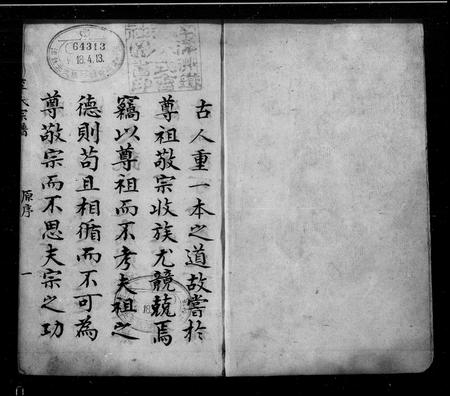 古人重一本之道故嘗於
尊祖敬宗收族尤競兢焉
竊以尊祖而不考夫祖之
德則苟且相循而不可為
尊敬宗而不思夫宗之功
氏宗譜
原序
一
64313
18.4.13.